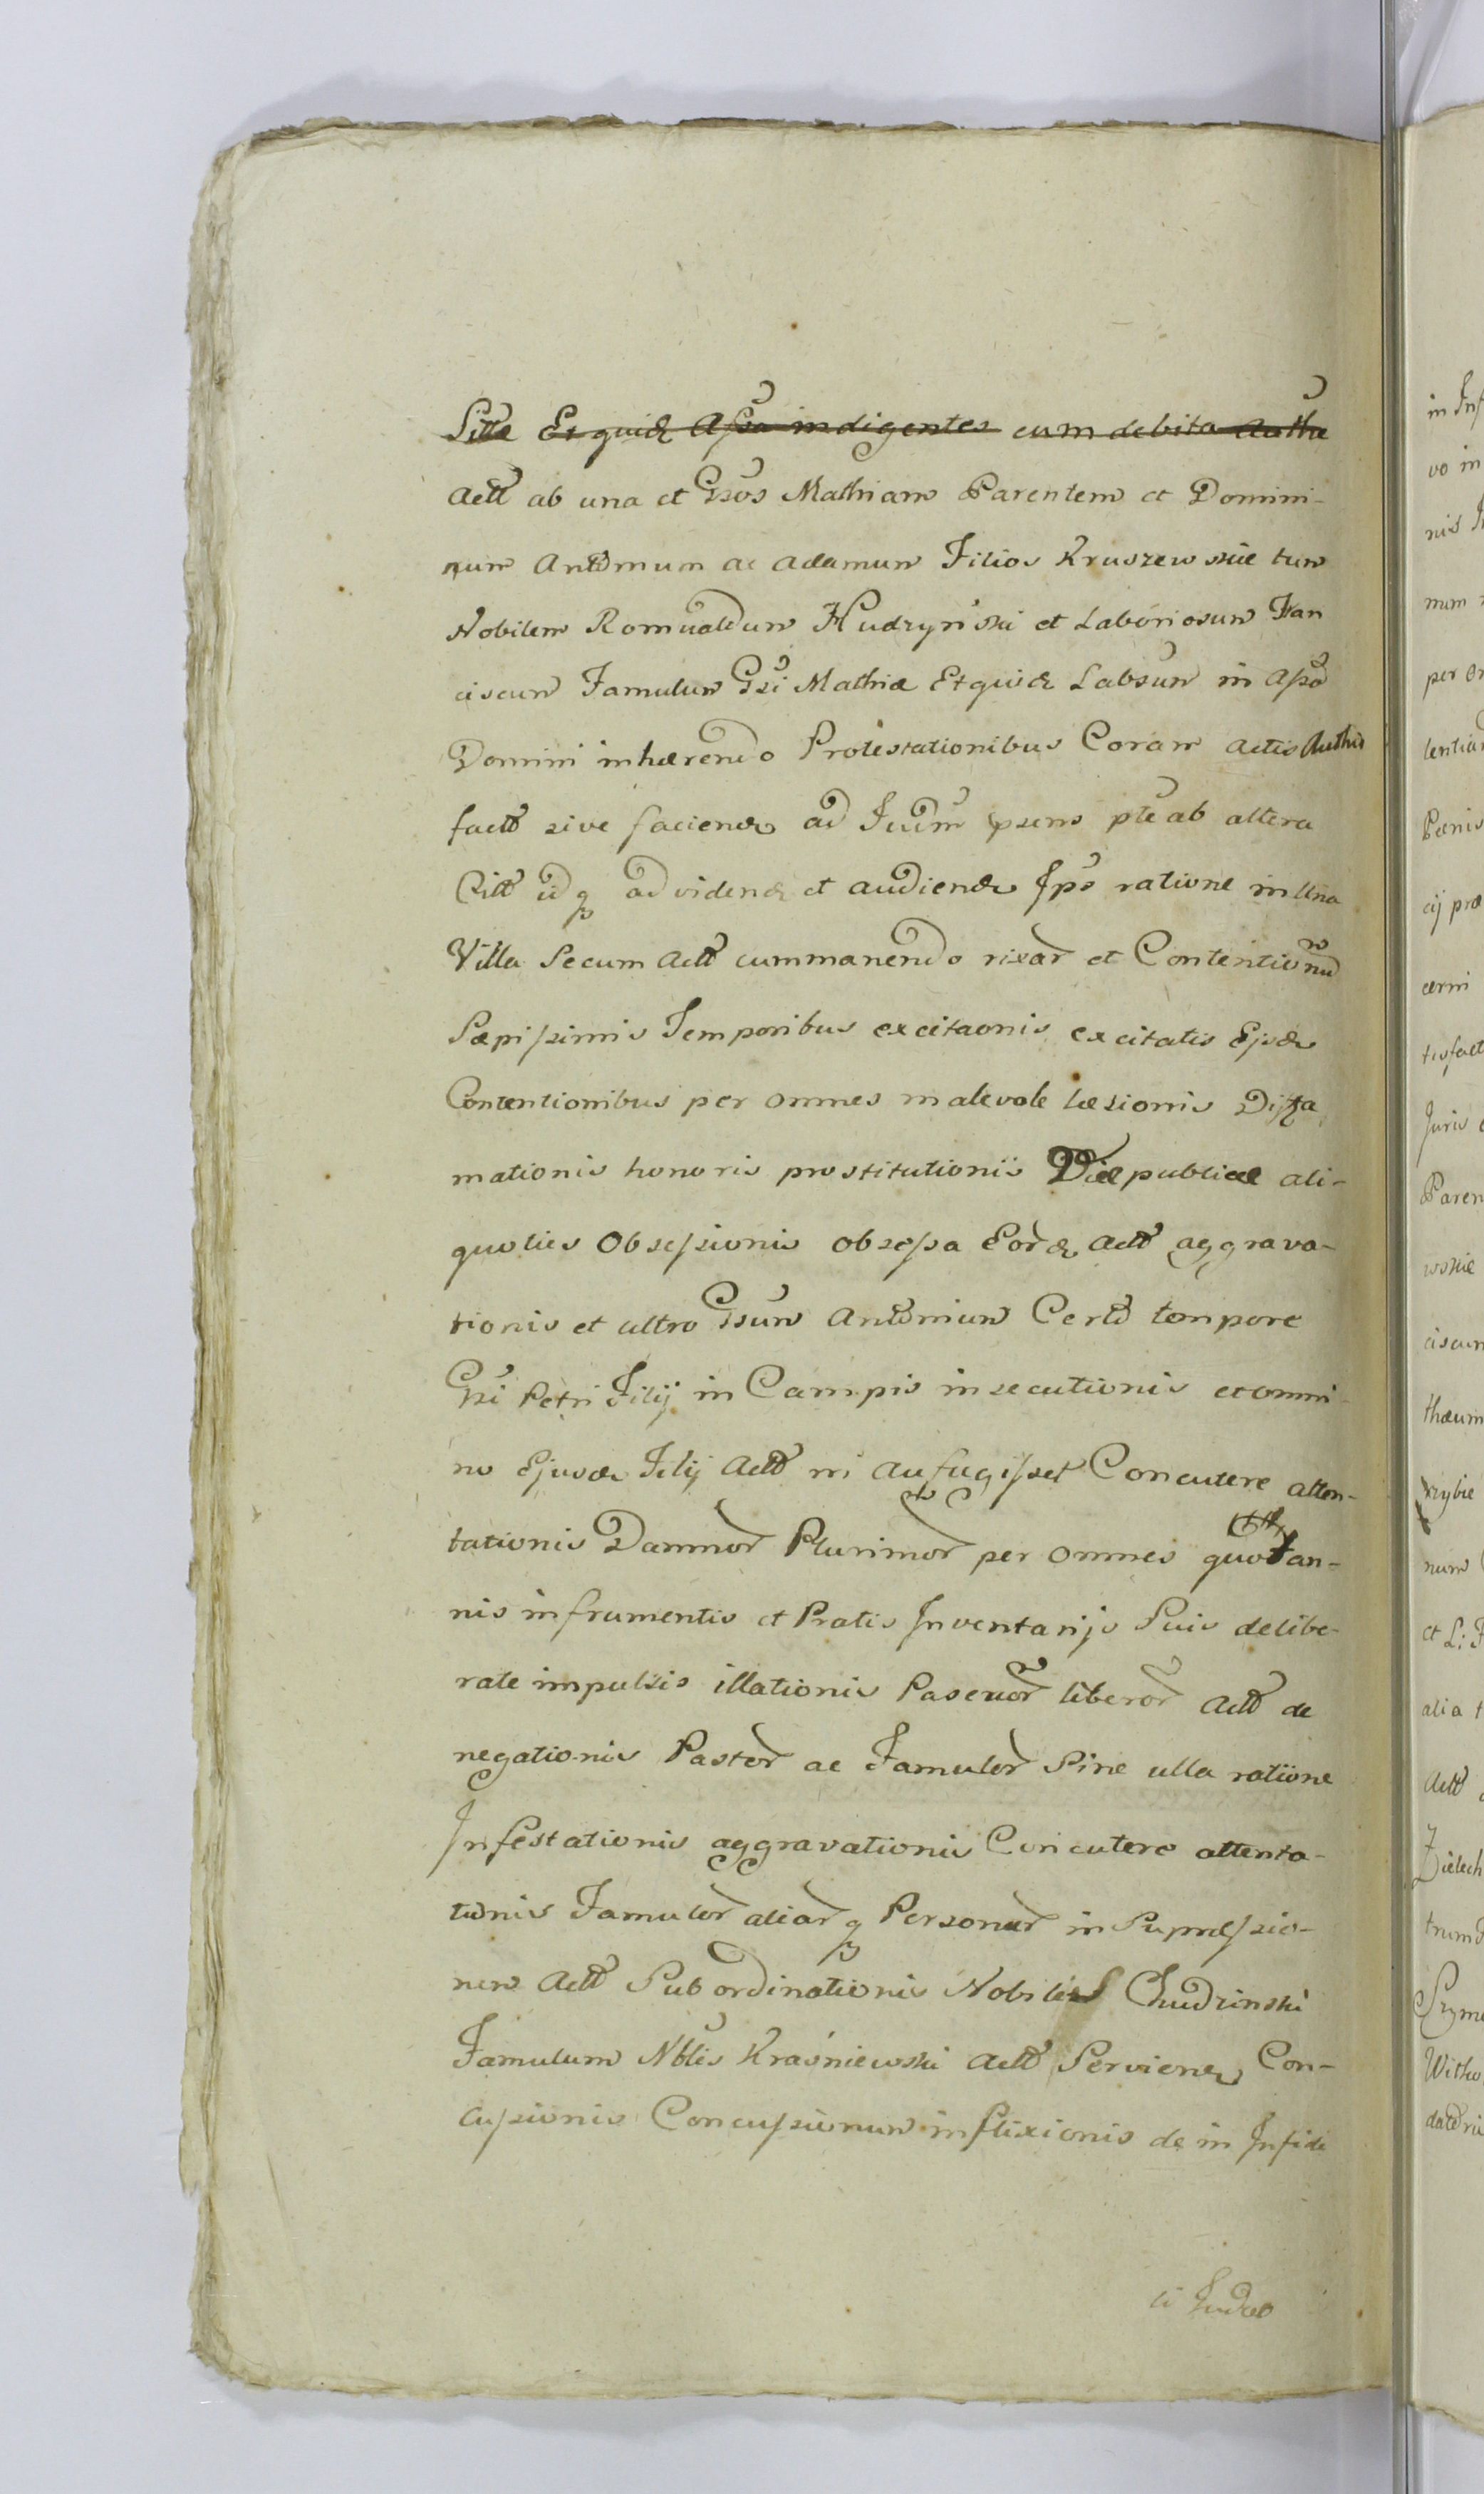 Sitte Et quid Assa indigentes cum debita Autha
Actt ab una et Gsos Mathiam Parentem et Domini-
cum Antonium ac Adamum Filios Kruszewskie tum
Nobilem Romualdum Hudzyński et Laboriosum Fran
ciscum Famulum Gsi Mathiæ Et quid Labsum in Assa
Domini inhærendo Protestationibus Coram Actis Authis
factt sive faciend ad Judm psens pte ab altera
Citt id q ad vidend et audiend Ips ratione in Una
Villa Secum Actt cummanendo rixar et Contentionu
Sæpissimis Temporibus excitaonis excitatis Ejsd
Contentionibus per omnes malevole læsionis Diffa
mationis honoris prostitutionis Viæ publicæ ali-
quoties Obsessionis obsessa Eord Actt aggrava-
tionis et ultro Gsum Antonium Certo tempore
Gsi Petri Filij in Campis insecutionis et omni-
no Ejusd Filij Actt ni aufugisset Concutere atten-
tationis Damnor Plurimor per omnes quotan-
nis in frumentis et Pratis Inventarijs Suis delibe-
rate impulsis illationis Pascuor liberor Actt de
negationis Pastor ac Famulor Sine ulla ratione
Infestationis aggravationis Concutere attenta-
tionis Famulor aliar q Personar in Suppressio-
nem Actt Subordinationis Nobilis Chudzinski
Famulum Nblis Kraśniewski Actt Serviend Con-
cussionis Concussionum inflixionis de in Infide
li Judæo
in Inf
vo in
nis
num
per
lentia
Pænis
cij præ
ærni
tisfact
Juris
Paren
wskie
ciscum
thæum
num
et L:
alia
Actt
Witko